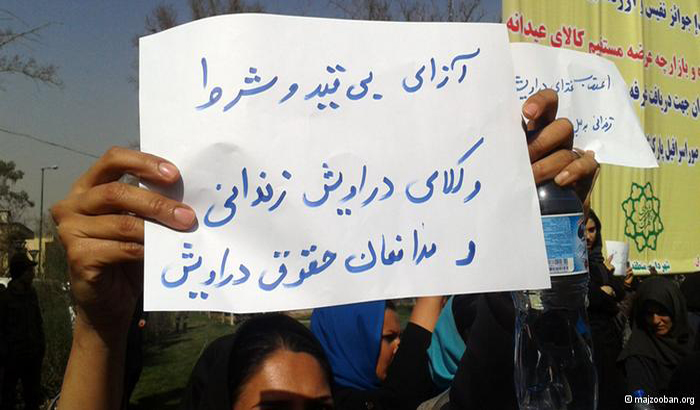 آزادی بی قید و شرط
وکلای دراویش زندانی
و مدافعان حقوق دراویش
جوائز نفیس و
و بازارچه عرضه مستقیم کالای عیدانه
جهت دریافت غرفه
اعتصاب غذای دراویش
زندانی به
majzooban.org